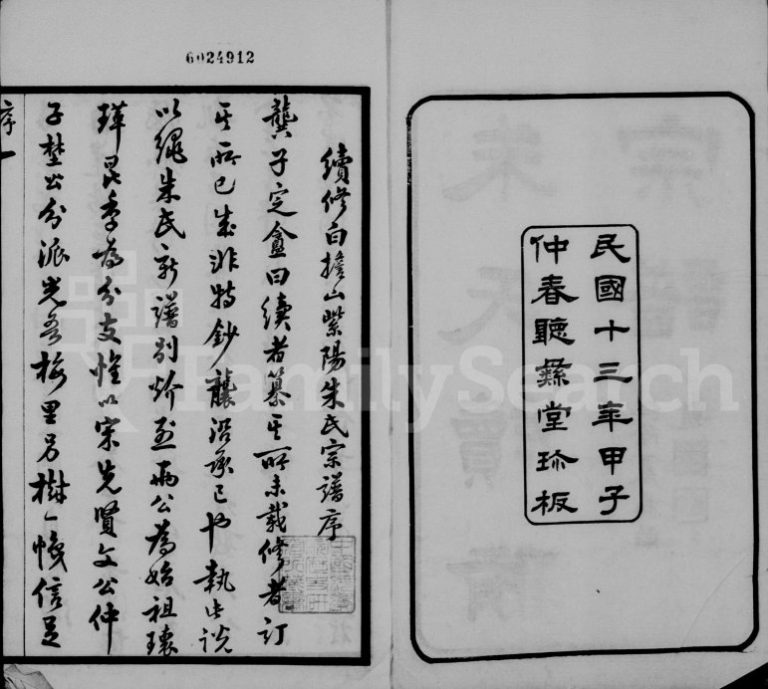 6024912
民國十三年甲子
仲春聽彝堂珍板
續修白擔山紫陽朱氏宗譜序
龔子定盦曰續者纂其所未載修者訂
其所已成非特鈔襲沿承已也執此說
以繩朱氏新譜別炌烈兩公為始祖瓌
琿昆季為分支惟以宋先賢文公仲
子埜公分派光吾梅里另樹一幟信足
序一
FamilySearch